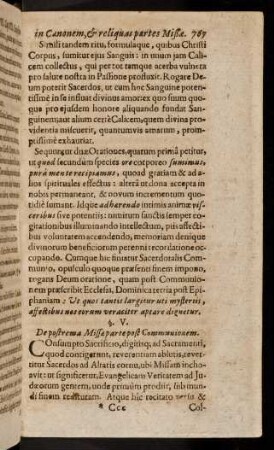 in Canonem, & reliquas partes Missæ. 769
Simili tandem ritu, formulaque, quibus Christi
Corpus, sumitur ejus Sanguis: in unum jam Calicem
collectus, qui per tot tamque acerba vulnera
pro salute nostra in Passione profluxit. Rogare Deum
poterit Sacerdos, ut eum hîc Sanguine potentissime
in se insinuet divinus amor: ex quo suum quoque
pro ejusdem honore aliquando fundat Sanguinem;
aut alium certè Calicem, quem divina providentia
miscuerit, quantumvis amarum, promptissimè
exhauriat.
Sequuntur duæ Orationes, quarum primâ petitur,
ut quod secundum species ore corporeo sumimus,
purâ mente recipiamus, quoad gratiam & alios
spirituales effectus: alterâ ut dona accepta in
nobis permaneant, & novum incrementum quotidiè
sumant. Idque adhærendo intimis animæ visceribus
sive potentiis: nimirum sanctis semper cogitationibus
illustrando intellectum, piis affectibus
voluntatem accendendo, memoriam denique
divinorum beneficiorum perenni recordatione occupando.
Cumque hîc finiatur Sacerdotalis Communio,
opusque præsens finem imponere,
regans Deum oratione, quam post Communionem
præscribit Ecclesia, Dominica tertia post Epiphaniam:
Ut quos tantis largitur uti mysteriis,
affectibus nos eorum veraciter aptare dignetur.
§. V.
De postrema Missæ parte post Communionem.
COnsumpto Sacrificio, digitisq, ad Sacramenti,
quod contigerant, reverentiam ablutis, revertitur
Sacerdos ad Altaris cornu, ubi Missam inchoavit:
ut significetur, Evangelicam Veritatem ad Judæorum
gentem, unde primùm prodiit, sub mundi
finem reversuram. Atque hîc recitato versu &
* Ccc Col-